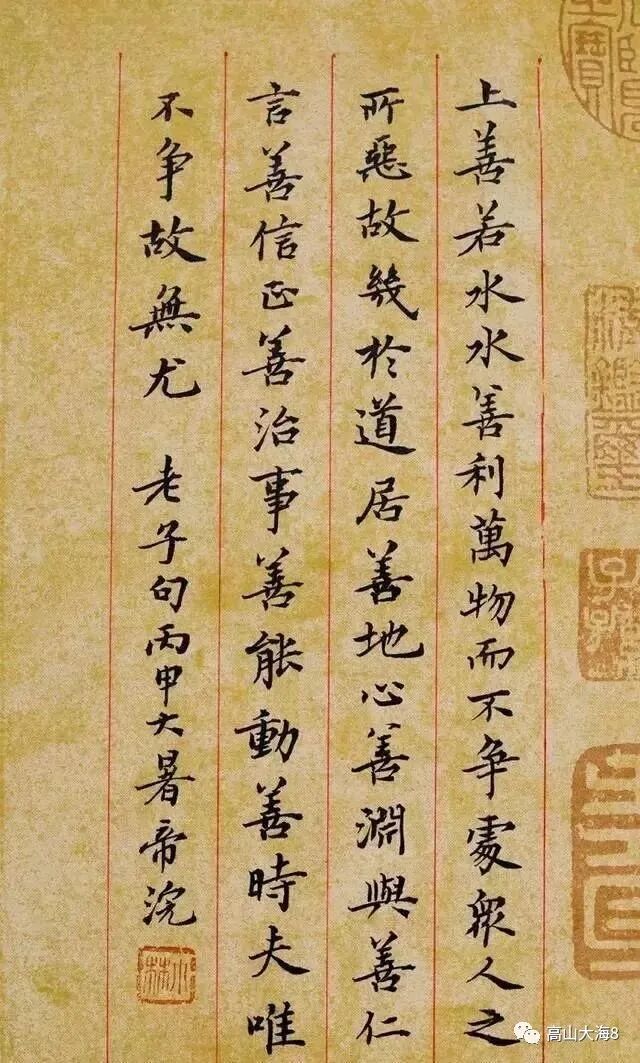 上善若水水善利萬物而不争處衆人之
所惡故幾於道居善地心善淵與善仁
言善信正善治事善能動善時夫唯
不争故無尤 老子句丙申大暑帝浣
小林
高山大海8